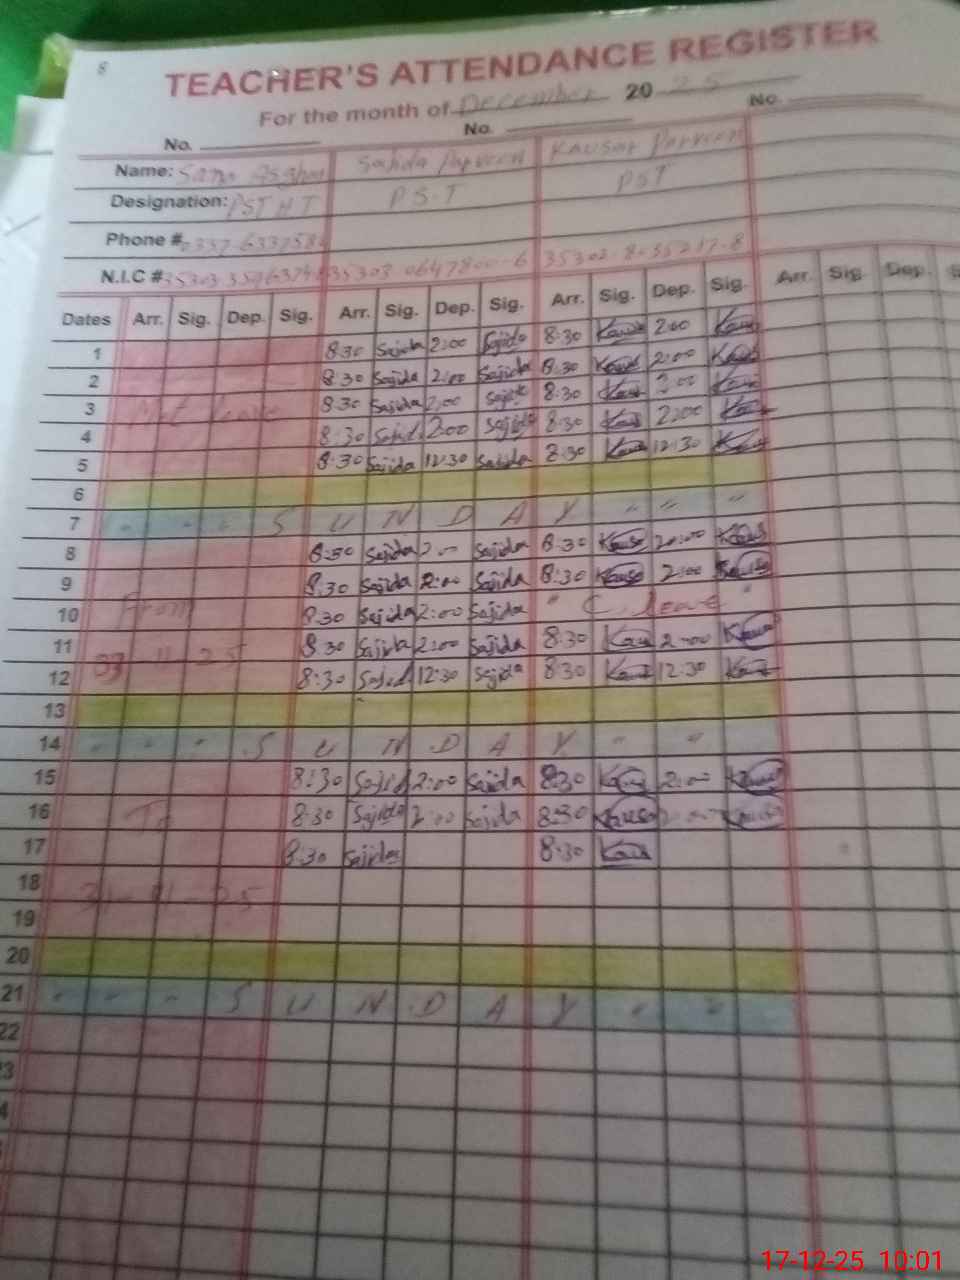 8
TEACHER'S ATTENDANCE REGISTER
For the month of December 20 25
No. No. No.
Name: Sana Asghar Sajida Parveen Kausar Parveen
Designation: PST H T P S.T PST
Phone #
N.I.C #
Dates Arr. Sig. Dep. Sig. Arr. Sig. Dep. Sig. Arr. Sig. Dep. Sig. Arr. Sig. Dep.
1 8:30 Sajida 2:00 Sajida 8:30 Kaus 2:00 Kaus
2 8:30 Sajida 2:00 Sajida 8:30 Kaus 2:00 Kaus
3 Mat leave 8:30 Sajida 2:00 Sajida 8:30 Kaus 2:00 Kaus
4 8:30 Sajida 2:00 Sajida 8:30 Kaus 2:00 Kaus
5 8:30 Sajida 12:30 Sajida 8:30 Kaus 12:30 Kaus
6
7 " " " S U N D A Y " " "
8 8:30 Sajida Sajida 8:30 Kaus Kaus
9 8:30 Sajida 2:00 Sajida 8:30 Kaus 2:00 Kaus
10 From 8:30 Sajida 2:00 Sajida " C. leave "
11 8:30 Sajida 2:00 Sajida 8:30 Kaus 2:00 Kaus
12 11-25 8:30 Sajida 12:30 Sajida 8:30 Kaus 12:30 Kaus
13
14 " " " S U N D A Y " "
15 8:30 Sajida 2:00 Sajida 8:30 Kaus 2:00 Kaus
16 To 8:30 Sajida 2:00 Sajida 8:30 Kaus Kaus
17 8:30 Sajida 8:30 Kaus
18
19
20
21 " " " S U N D A Y " "
22
17-12-25 10:01